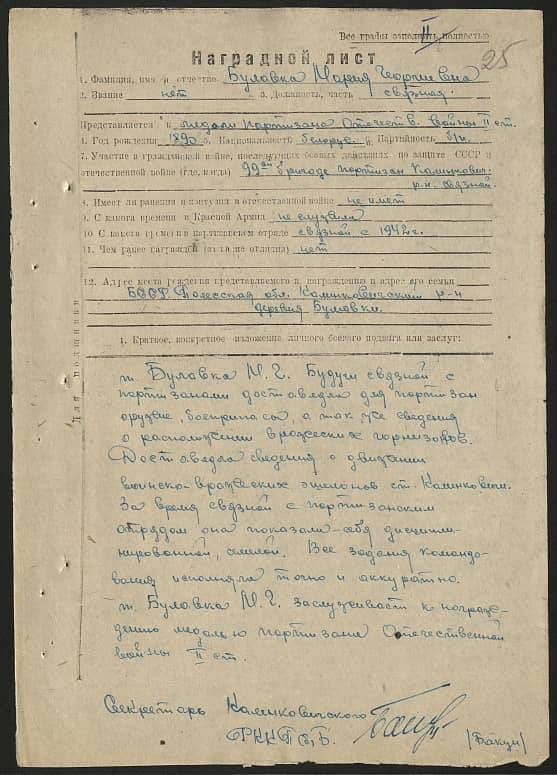 Все графы заполнять полностью
II
25
Наградной лист
1. Фамилия, имя и отчество Булавка Мария Георгиевна
2. Звание нет 3. Должность, часть связная
Представляется к медали партизана Отечеств. войны II ст.
4. Год рождения 1890 5. Национальность белорус. 6. Партийность б/п
7. Участие в гражданской войне, последующих боевых действиях по защите СССР и
отечественной войне (где, когда) 99ой бригаде партизан Калинкович.
р-н. связной
8. Имеет ли ранения и контузии в отечественной войне не имеет
9. С какого времени в Красной Армии не служила
10 С какого времени в партизанском отряде связной с 1942 г.
11. Чем ранее награждён (за какие отличия) нет
12. Адрес места рождения представляемого к награждению и адрес его семьи
БССР Полесская обл. Калинковичский р-н
деревня Булавки.
Для подшивки
1. Краткое, конкретное изложение личного боевого подвига или заслуг:
т. Булавка М. Г. Будучи связной с
партизанами доставляла для партизан
оружие, боеприпасы, а так же сведения
о расположении вражеских гарнизонов.
Доставляла сведения о движении
воинско-вражеских эшелонов ст. Калинковичи.
За время связной с партизанским
отрядом она показала себя дисципли-
нированной, смелой. Все задания командо-
вания исполняла точно и аккуратно.
т. Булавка М. Г. заслуживает к награж-
дению медалью партизана Отечественной
войны II ст.
Секретарь Калинковичского
РККП(б)Б.
(Бакун)